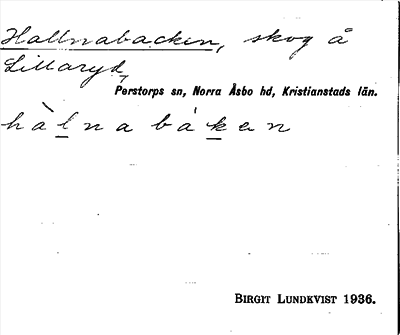 Hallnabacken, skog å
Lillaryd,
Perstorps sn, Norra Åsbo hd, Kristianstads län.
hàlnabáken
BIRGIT LUNDKVIST 1936.